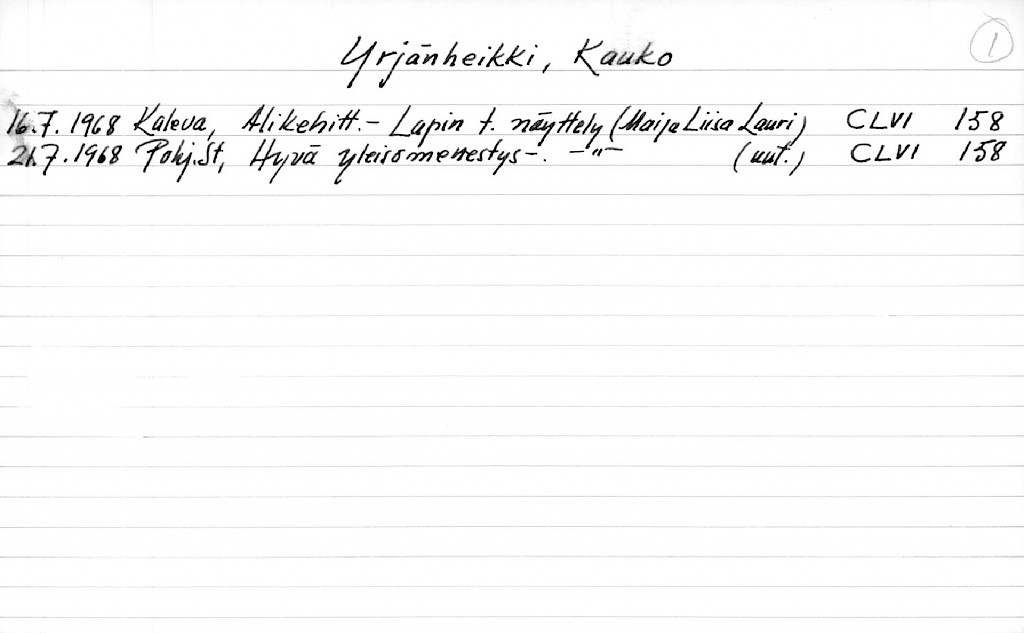 1
Yrjänheikki, Kauko
16.7.1968 Kaleva, Alikehitt.- Lapin t. näyttely (Maija Liisa Lauri) CLVI 158
21.7.1968 Pohj.St, Hyvä yleisömenestys-. -"- (uut.) CLVI 158